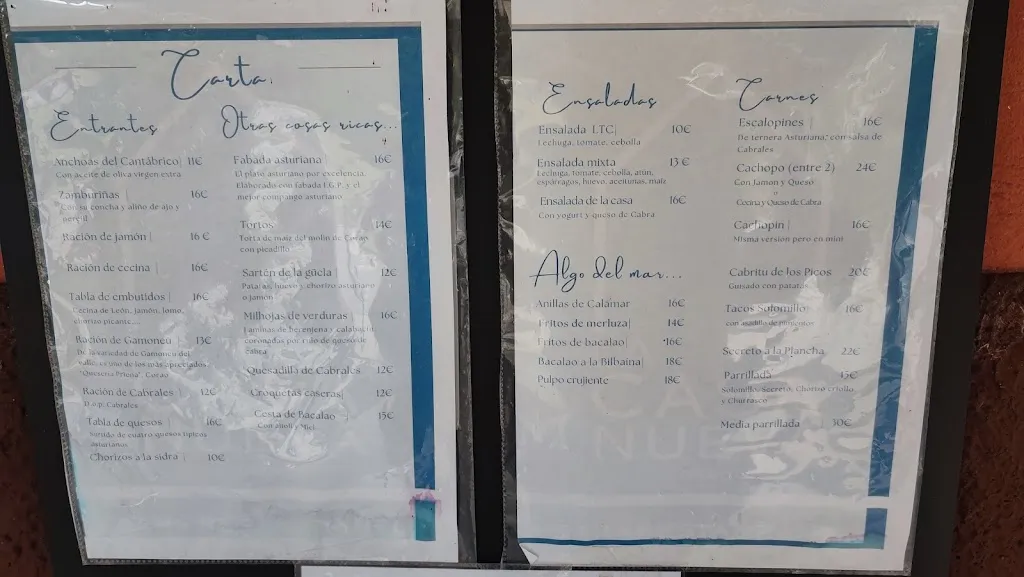 Carta
Entrantes
Anchoas del Cantábrico| 11€
Con aceite de oliva virgen extra
Zamburiñas | 16€
Con su concha y aliño de ajo y
perejil
Ración de jamón | 16 €
Ración de cecina | 16€
Tabla de embutidos | 16€
Cecina de León, jamón, lomo,
chorizo picante...
Ración de Gamoneu | 13€
De la variedad de Gamoneu del
valle, es uno de los más apreciados.
"Quesería Priena", Corao
Ración de Cabrales 12€
D.o.p. Cabrales
Tabla de quesos | 16€
Surtido de cuatro quesos típicos
asturianos
Chorizos a la sidra | 10€
Otras cosas ricas...
Fabada asturiana | 16€
El plato asturiano por excelencia.
Elaborado con fabada I.G.P. y el
mejor compango asturiano
Tortos 14€
Torta de maíz del molín de Corao
con picadillo
Sartén de la güela 12€
Patatas, huevo y chorizo asturiano
o jamón
Milhojas de verduras | 16€
Laminas de berenjena y calabacín
coronadas por rulo de queso de
cabra
Quesadilla de Cabrales 12€
Croquetas caseras| 12€
Cesta de Bacalao 15€
Con alioli y Miel
Ensaladas
Ensalada LTC| 10€
Lechuga, tomate, cebolla
Ensalada mixta 13 €
Lechuga, tomate, cebolla, atún,
espárragos, huevo, aceitunas, maíz
Ensalada de la casa 16€
Con yogurt y queso de Cabra
Algo del mar...
Anillas de Calamar 16€
Fritos de merluza| 14€
Fritos de bacalao| 16€
Bacalao a la Bilbaina| 18€
Pulpo crujiente 18€
Carnes
Escalopines | 16€
De ternera Asturiana, con salsa de
Cabrales
Cachopo (entre 2) 24€
Con Jamon y Queso
o
Cecina y Queso de Cabra
Cachopin | 16€
Misma version pero en mini
Cabritu de los Picos 20€
Guisado con patatas
Tacos Solomillo 16€
con asadillo de pimientos
Secreto a la Plancha 22€
Parrillada 45€
Solomillo, Secreto, Chorizo criollo
y Churrasco
Media parrillada 30€